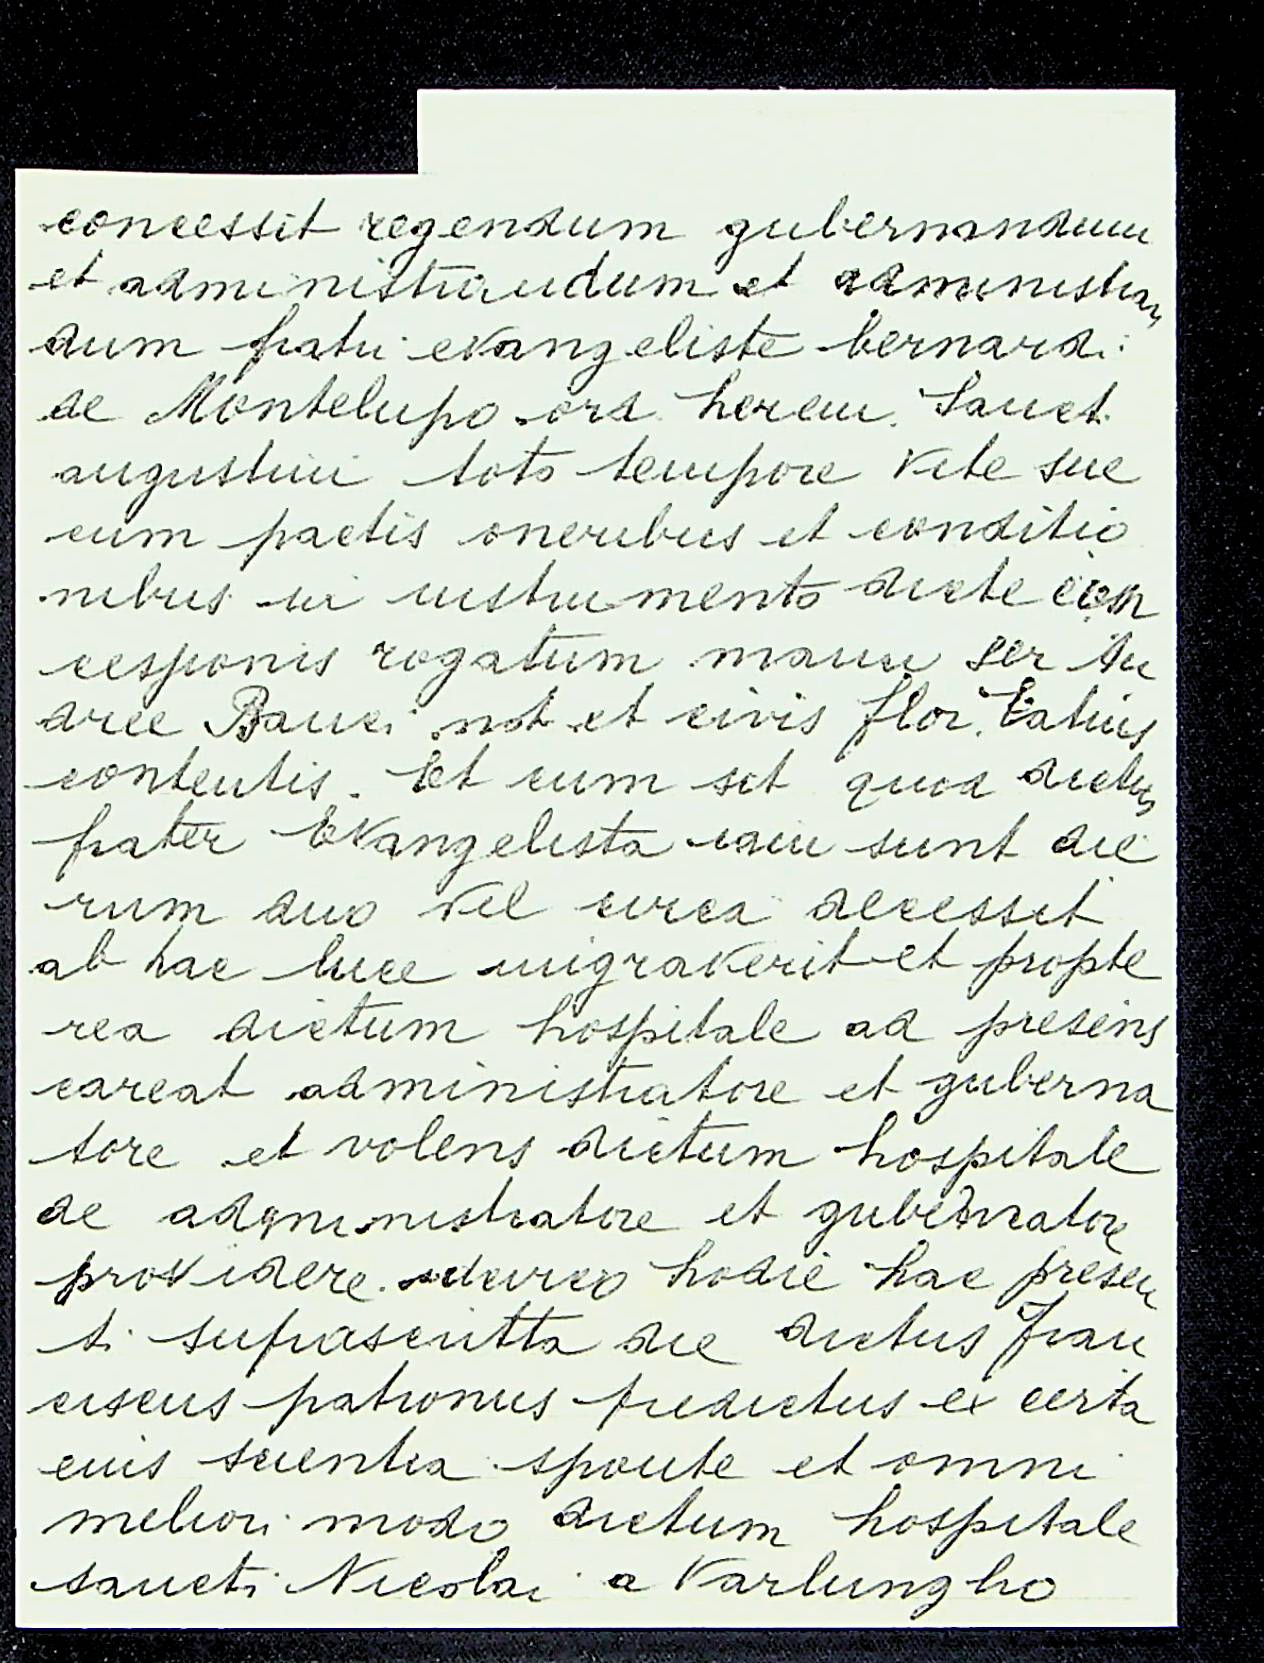 concessit regendum gubernandum
et administraudum et administran
dum fratri evangeliste bernardi
de Montelupo ord. herem. Sanct.
augustini toto tempore vite sue
cum pactis oneribus et conditio
nibus in instrumento dicte con
cessionis rogatum manu ser An
dree Banci not et civis flor. latius
contentis. Et cum sit quod dictus
frater Evangelista iam sunt die
rum duo vel circa decessit
ab hac luce migraverit et propte
rea dictum hospitale ad presens
careat administratore et guberna
tore et volens dictum hospitale
de administratore et gubernatore
providere. idcirco hodie hac presen
ti suprascritta die dictus fran
ciscus patronus predictus ex certa
eius scientia sponte et omni
meliori modo dictum hospitale
sancti Nicolai a Varlungho